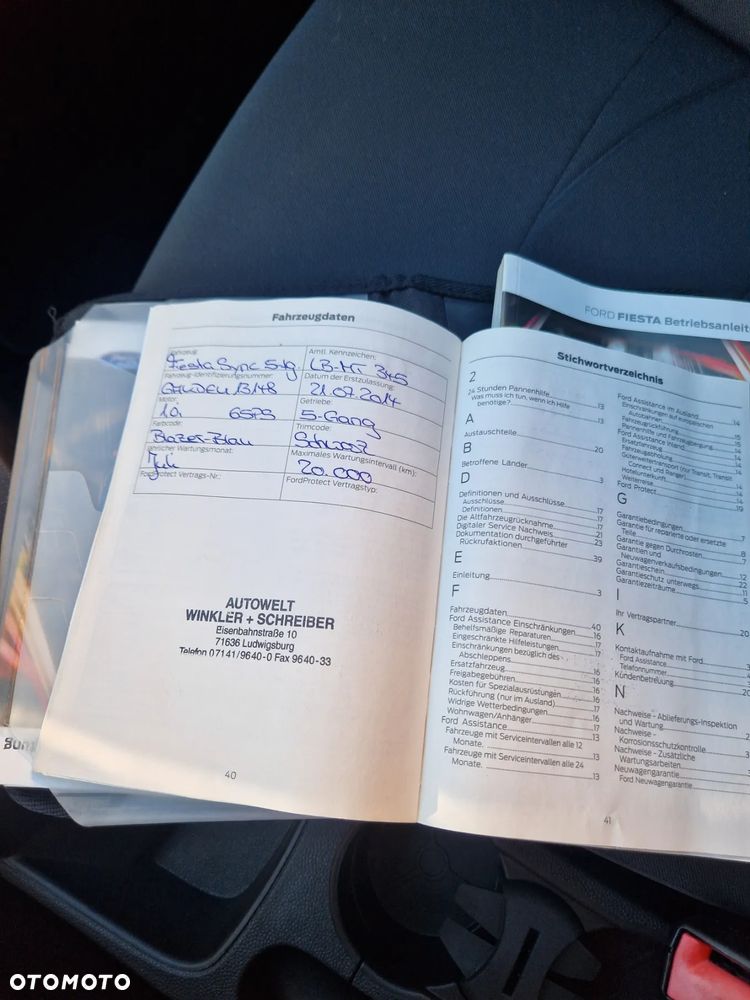 FORD FIESTA Betriebsanleit
Fahrzeugdaten
Fahrzeug:
Fiesta Sync 5tg.
Amtl. Kennzeichen:
LB-
345
Fahrzeug-Identifizierungsnummer:
Datum der Erstzulassung:
21.07.2014
Motor:
65PS
Getriebe:
5-Gang
Farbcode:
Blazer-Blau
Trimcode:
Schwarz
Jährlicher Wartungsmonat:
Juli
Maximales Wartungsintervall (km):
20.000
FordProtect Vertrags-Nr.:
FordProtect Vertragstyp:
AUTOWELT
WINKLER + SCHREIBER
Eisenbahnstraße 10
71636 Ludwigsburg
Telefon 07141/9640-0 Fax 9640-33
40
Stichwortverzeichnis
2
24 Stunden Pannenhilfe 13
Was muss ich tun, wenn ich Hilfe
benötige? 13
A
Austauschteile 20
B
Betroffene Länder 3
D
Definitionen und Ausschlüsse 17
Ausschlüsse 17
Definitionen 17
Die Altfahrzeugrücknahme 21
Digitaler Service Nachweis 23
Dokumentation durchgeführter
Rückrufaktionen 39
E
Einleitung 3
F
Fahrzeugdaten 40
Ford Assistance Einschränkungen 16
Behelfsmäßige Reparaturen 17
Eingeschränkte Hilfeleistungen 17
Einschränkungen bezüglich des
Abschleppens 16
Ersatzfahrzeug 16
Freigabegebühren 16
Kosten für Spezialausrüstungen 16
Rückführung (nur im Ausland) 17
Widrige Wetterbedingungen 16
Wohnwagen/Anhänger 17
Ford Assistance 13
Fahrzeuge mit Serviceintervallen alle 12
Monate. 13
Fahrzeuge mit Serviceintervallen alle 24
Monate. 13
Ford Assistance im Ausland 14
Einschränkungen auf europäischen
Autobahnen
Fahrzeugrückführung
Pannenhilfe und Fahrzeugbergung
Ford Assistance Inland
Ersatzfahrzeug
Fahrzeugabholung
Güterweitertransport (nur Transit, Transit
Connect und Ranger)
Hotelunterkunft
Weiterreise
Ford Protect 19
G
Garantiebedingungen 7
Garantie für reparierte oder ersetzte
Teile 8
Garantie gegen Durchrosten 7
Garantien und
Neuwagenverkaufsbedingungen 12
Garantieschein 22
Garantieschutz unterwegs 11
Garantiezeiträume 5
I
Ihr Vertragspartner 20
K
Kontaktaufnahme mit Ford
Ford Assistance
Telefonnummer
Kundenbetreuung
N
Nachweise - Ablieferungs-Inspektion
und Wartung
Nachweise -
Korrosionsschutzkontrolle
Nachweise - Zusätzliche
Wartungsarbeiten
Neuwagengarantie
Ford Neuwagengarantie
41
OTOMOTO